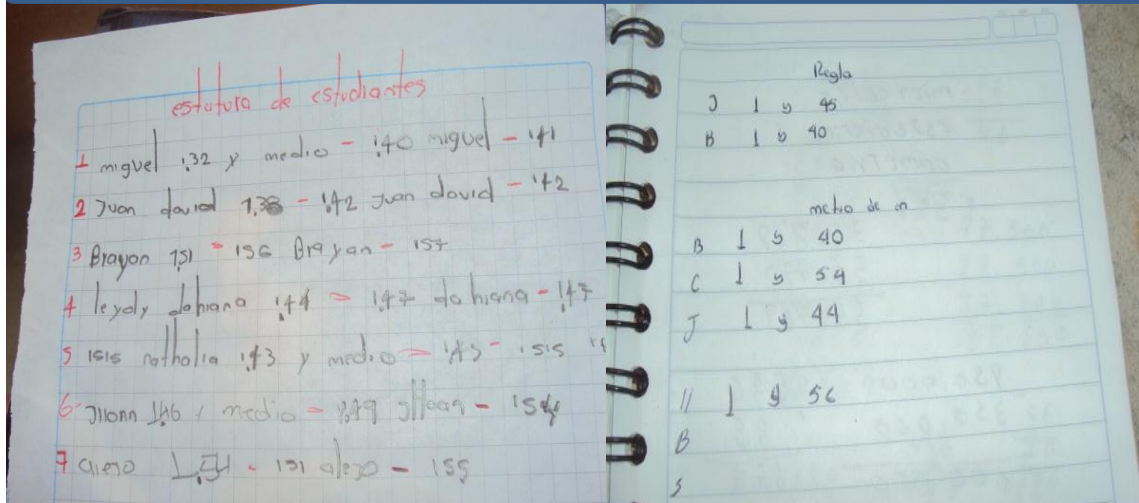 estatura de estudiantes
1 miguel 1.32 y medio - 1.40 miguel - 1.41
2 Juan david 1.38 - 1.42 Juan david - 1.42
3 Brayan 1.51 - 156 Brayan - 157
4 leydy dahiana 1.44 - 1.47 dahiana - 1.47
5 isis nathalia 1.43 y medio - 1.45 - isis
6 Jhoan 1.46 y medio - 1.49 Jhoan -
7 alejo - 151 alejo - 155
Regla
J 1 y 45
B 1 y 40
metro de
B 1 y 40
C 1 y 54
J 1 y 44
11 1 y 56
B
S